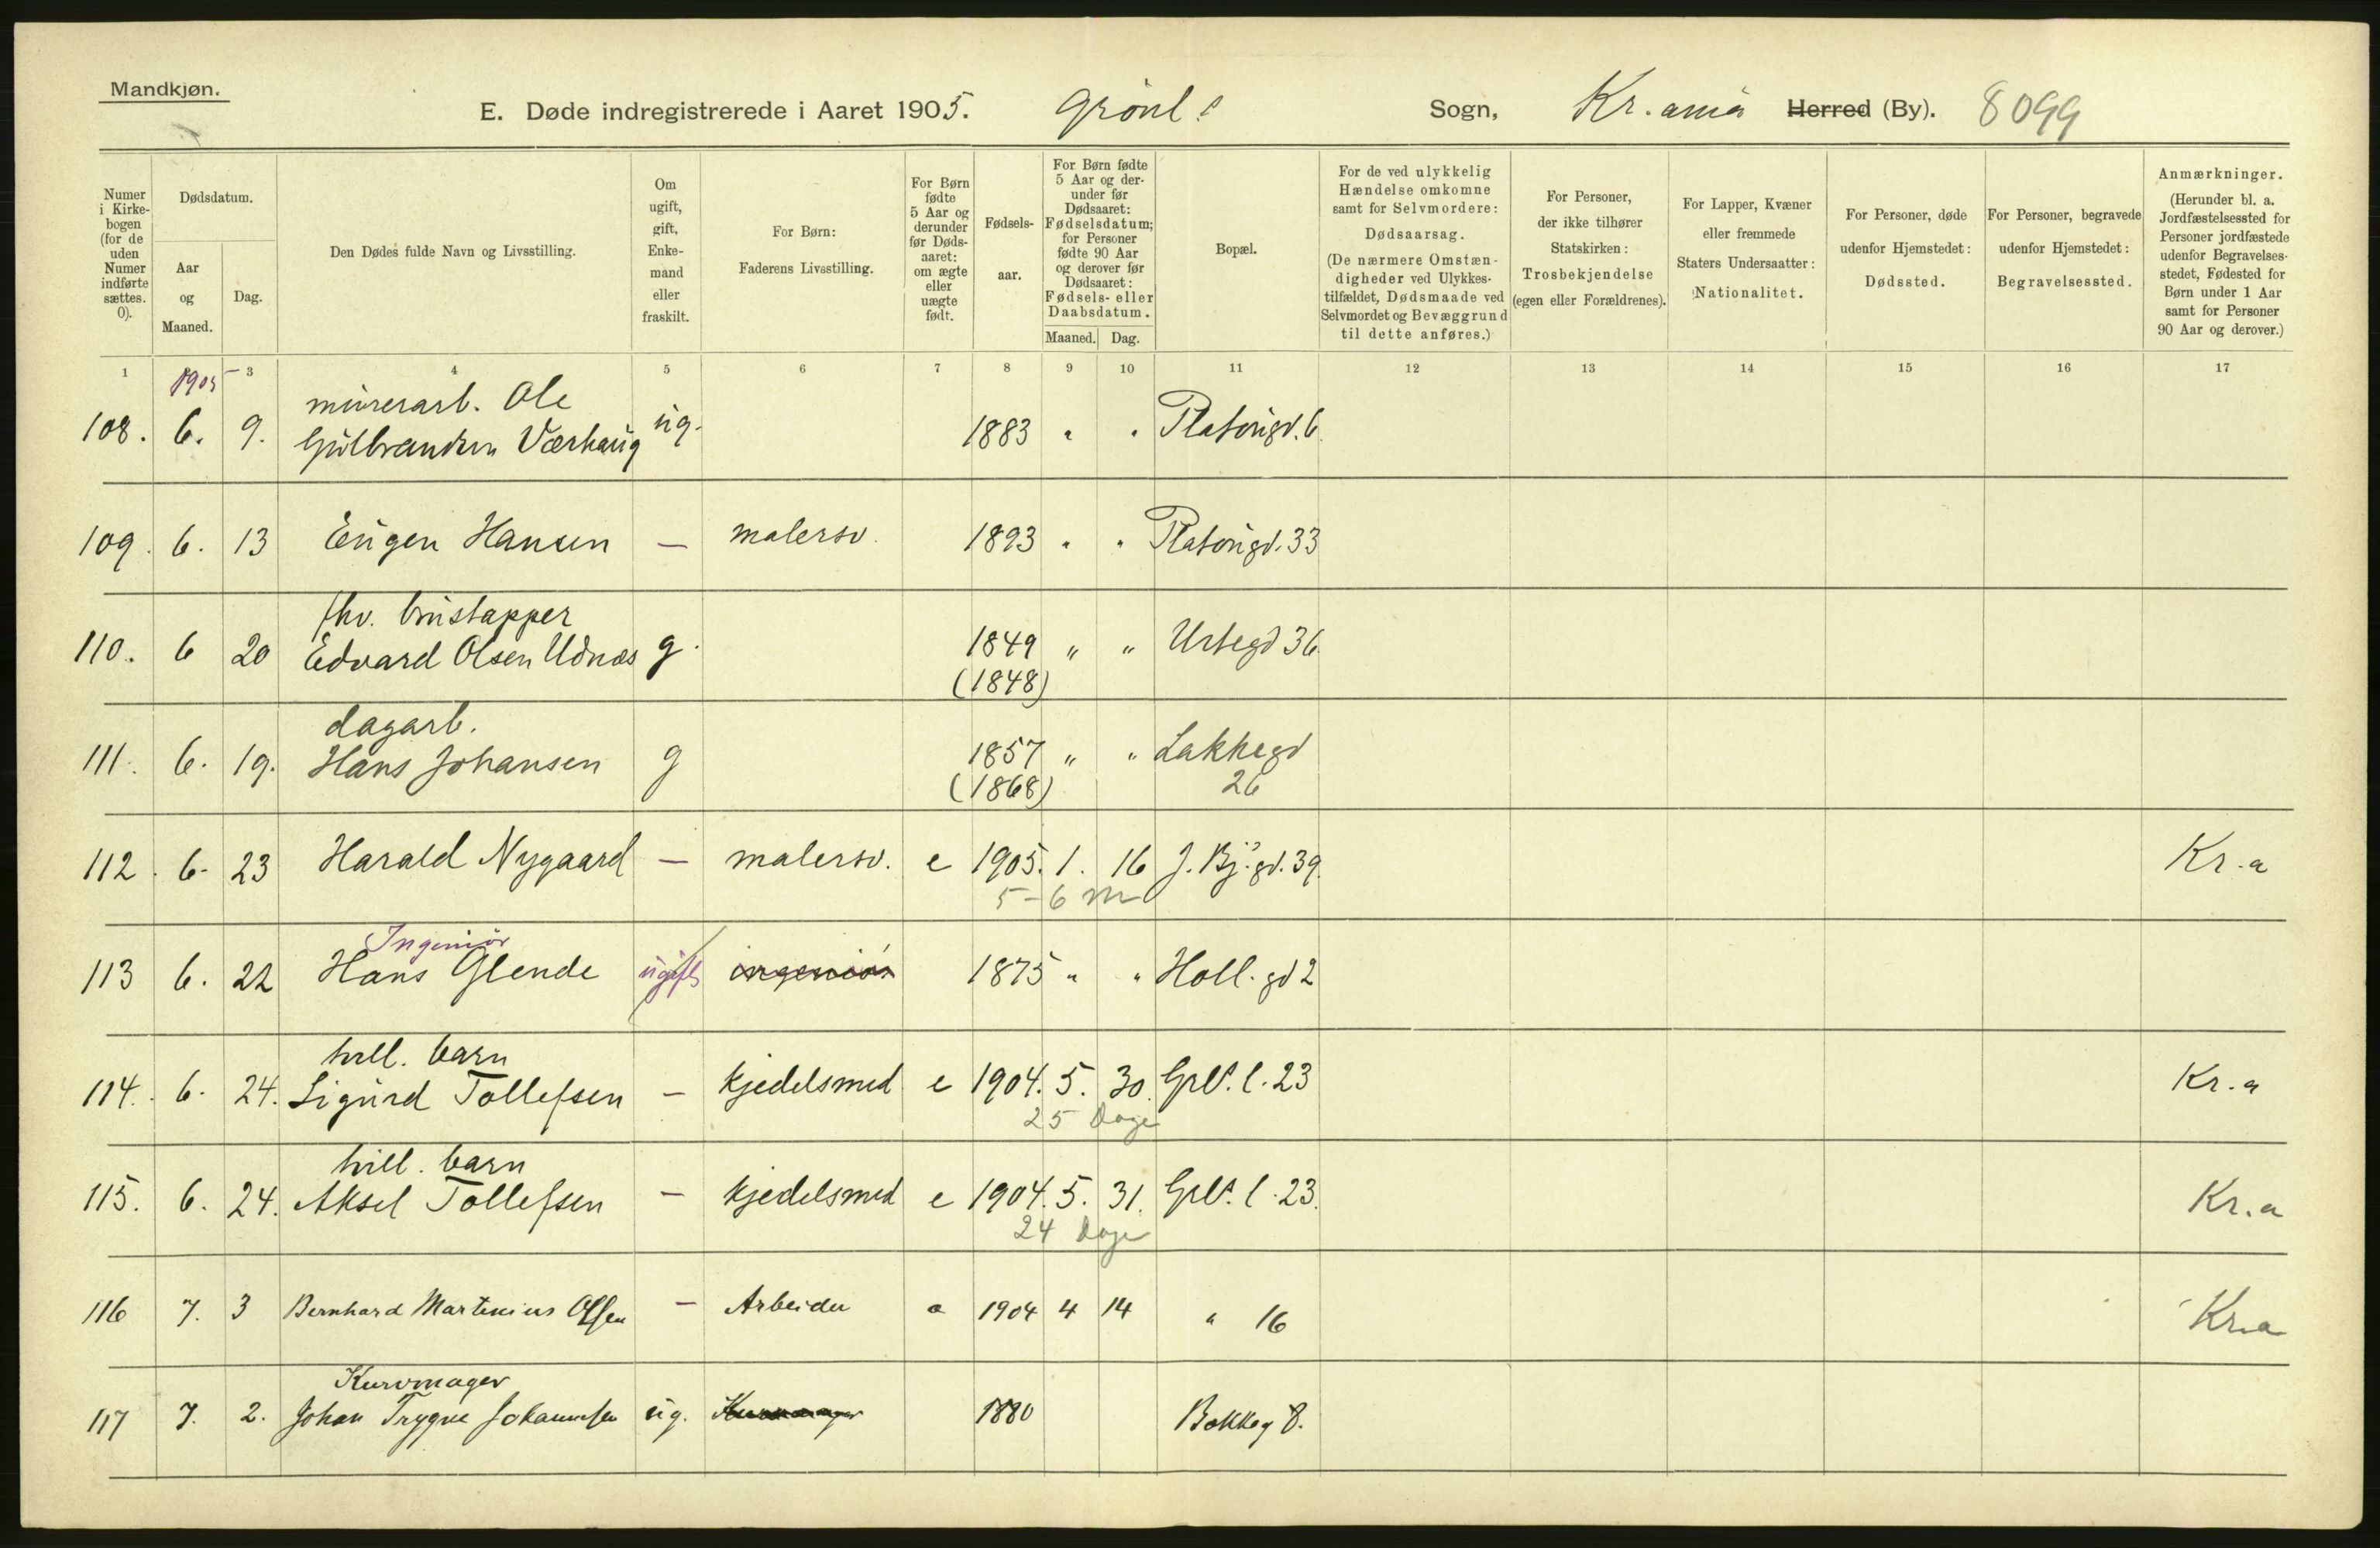 Mandkjøn.
E. Døde indregistrerede i Aaret 1905. Grönl.s Sogn, Kr.ania Herred (By). 8099
Numer i Kirkebogen (for de uden Numer indførte sættes. 0).
Dødsdatum.
Aar og Maaned.
Dag.
Den Dødes fulde Navn og Livsstilling.
Om ugift, gift, Enkemand eller fraskilt.
For Børn: Faderens Livsstilling.
For Børn fødte 5 Aar og derunder før Dødsaaret: om ægte eller uægte født.
Fødselsaar.
For Børn fødte 5 Aar og derunder før Dødsaaret: Fødselsdatum; for Personer fødte 90 Aar og derover før Dødsaaret: Fødsels- eller Daabsdatum.
Maaned. Dag.
Bopæl.
For de ved ulykkelig Hændelse omkomne samt for Selvmordere: Dødsaarsag. (De nærmere Omstændigheder ved Ulykkestilfældet, Dødsmaade ved Selvmordet og Bevæggrund til dette anføres.)
For Personer, der ikke tilhører Statskirken: Trosbekjendelse (egen eller Forældrenes).
For Lapper, Kvæner eller fremmede Staters Undersaatter: Nationalitet.
For Personer, døde udenfor Hjemstedet: Dødssted.
For Personer, begravede udenfor Hjemstedet: Begravelsessted.
Anmærkninger. (Herunder bl. a. Jordfæstelsessted for Personer jordfæstede udenfor Begravelsesstedet, Fødested for Børn under 1 Aar samt for Personer 90 Aar og derover.)
1 3 4 5 6 7 8 9 10 11 12 13 14 15 16 17
1905
murerarb. Ole
108. 6. 9. Gulbrandsen Værhaug ug. 1883 " " Platougd. 6.
109. 6. 13 Eugen Hansen — malersv. 1893 " " Platougd. 33
fhv. ølustapper
110. 6 20 Edvard Olsen Udnæs g. 1849 " " Urtegd 36.
(1848)
dagarb.
111. 6. 19. Hans Johansen g 1857 " " Lakkegd
(1868) 26
112. 6. 23 Harald Nygaard — malersv. e 1905. 1. 16 J. Bj. gd. 39. Kr.a
5-6 m
Ingeniør
113 6. 22 Hans Glende ugift ingeniør 1875 " " Holl. gd 2
tvill. barn
114. 6. 24. Sigurd Tollefsen — kjedelsmed e 1904. 5. 30. Grls. l. 23 Kr.a
25 Dage
tvill. barn
115. 6. 24. Aksel Tollefsen — kjedelsmed e 1904. 5. 31. Grls. l. 23. Kr.a
24 Dage
116 7. 3 Bernhard Martinius Olsen — Arbeider 1904 4 14 " 16 Kr.a
Kurvmager
117 7. 2. Johan Trygve Johannesen ug. Kurvmager 1880 Bakkeg 8.